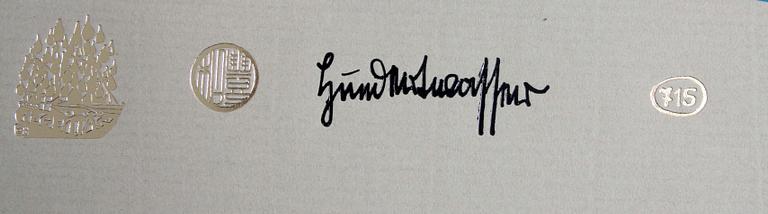 Hundertwasser
715